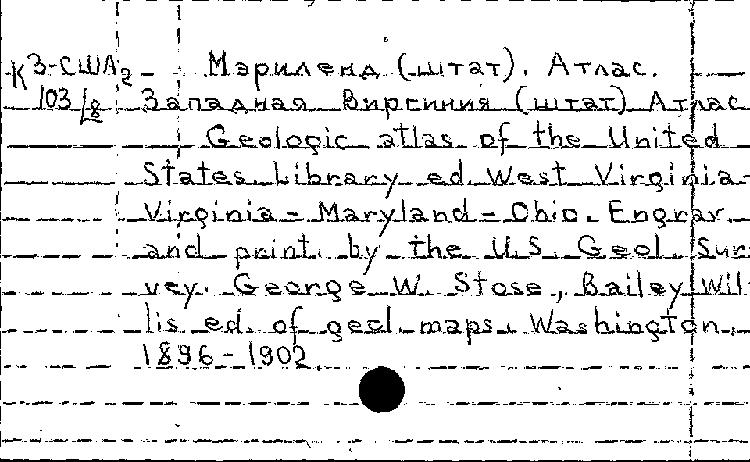 К 3-США2 Мэриленд (штат). Атлас.
103/L8 Западная Виргиния (штат) Атлас
Geologic atlas of the United
States. Library ed. West Virginia-
Virginia - Maryland - Ohio. Engrav.
and print. by the U.S. Geol. Sur
vey. George W. Stose, Bailey Wil
lis ed. of geol. maps. Washington,
1896-1902